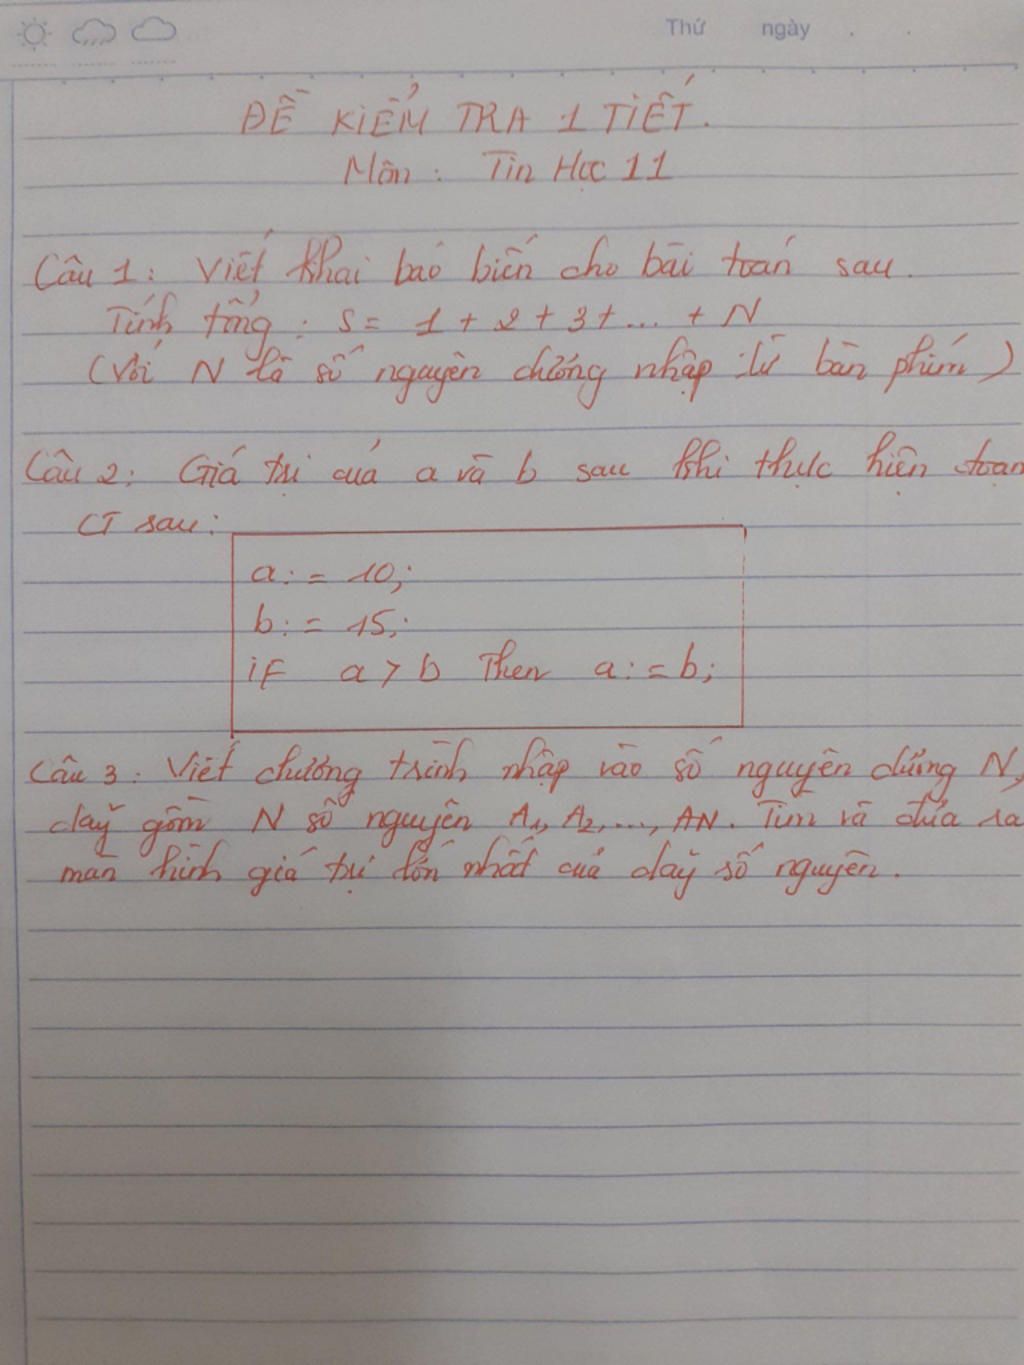 Thứ ngày
ĐỀ KIỂM TRA 1 TIẾT.
Môn: Tin Học 11
Câu 1: Viết khai báo biến cho bài toán sau.
Tính tổng: S = 1 + 2 + 3 + ... + N
(Với N là số nguyên dương nhập từ bàn phím)
Câu 2: Giá trị của a và b sau khi thực hiện đoạn
CT sau:
a := 10;
b := 15;
if a > b Then a := b;
Câu 3: Viết chương trình nhập vào số nguyên dương N,
dãy gồm N số nguyên A1, A2, ..., AN. Tìm và đưa ra
màn hình giá trị lớn nhất của dãy số nguyên.